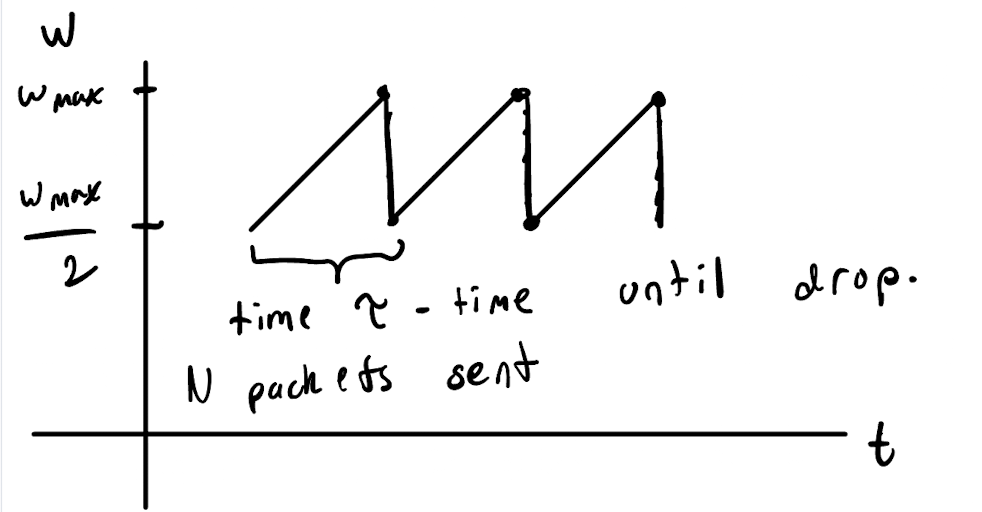 W
W max
W max
2
time τ - time until drop.
N packets sent
t